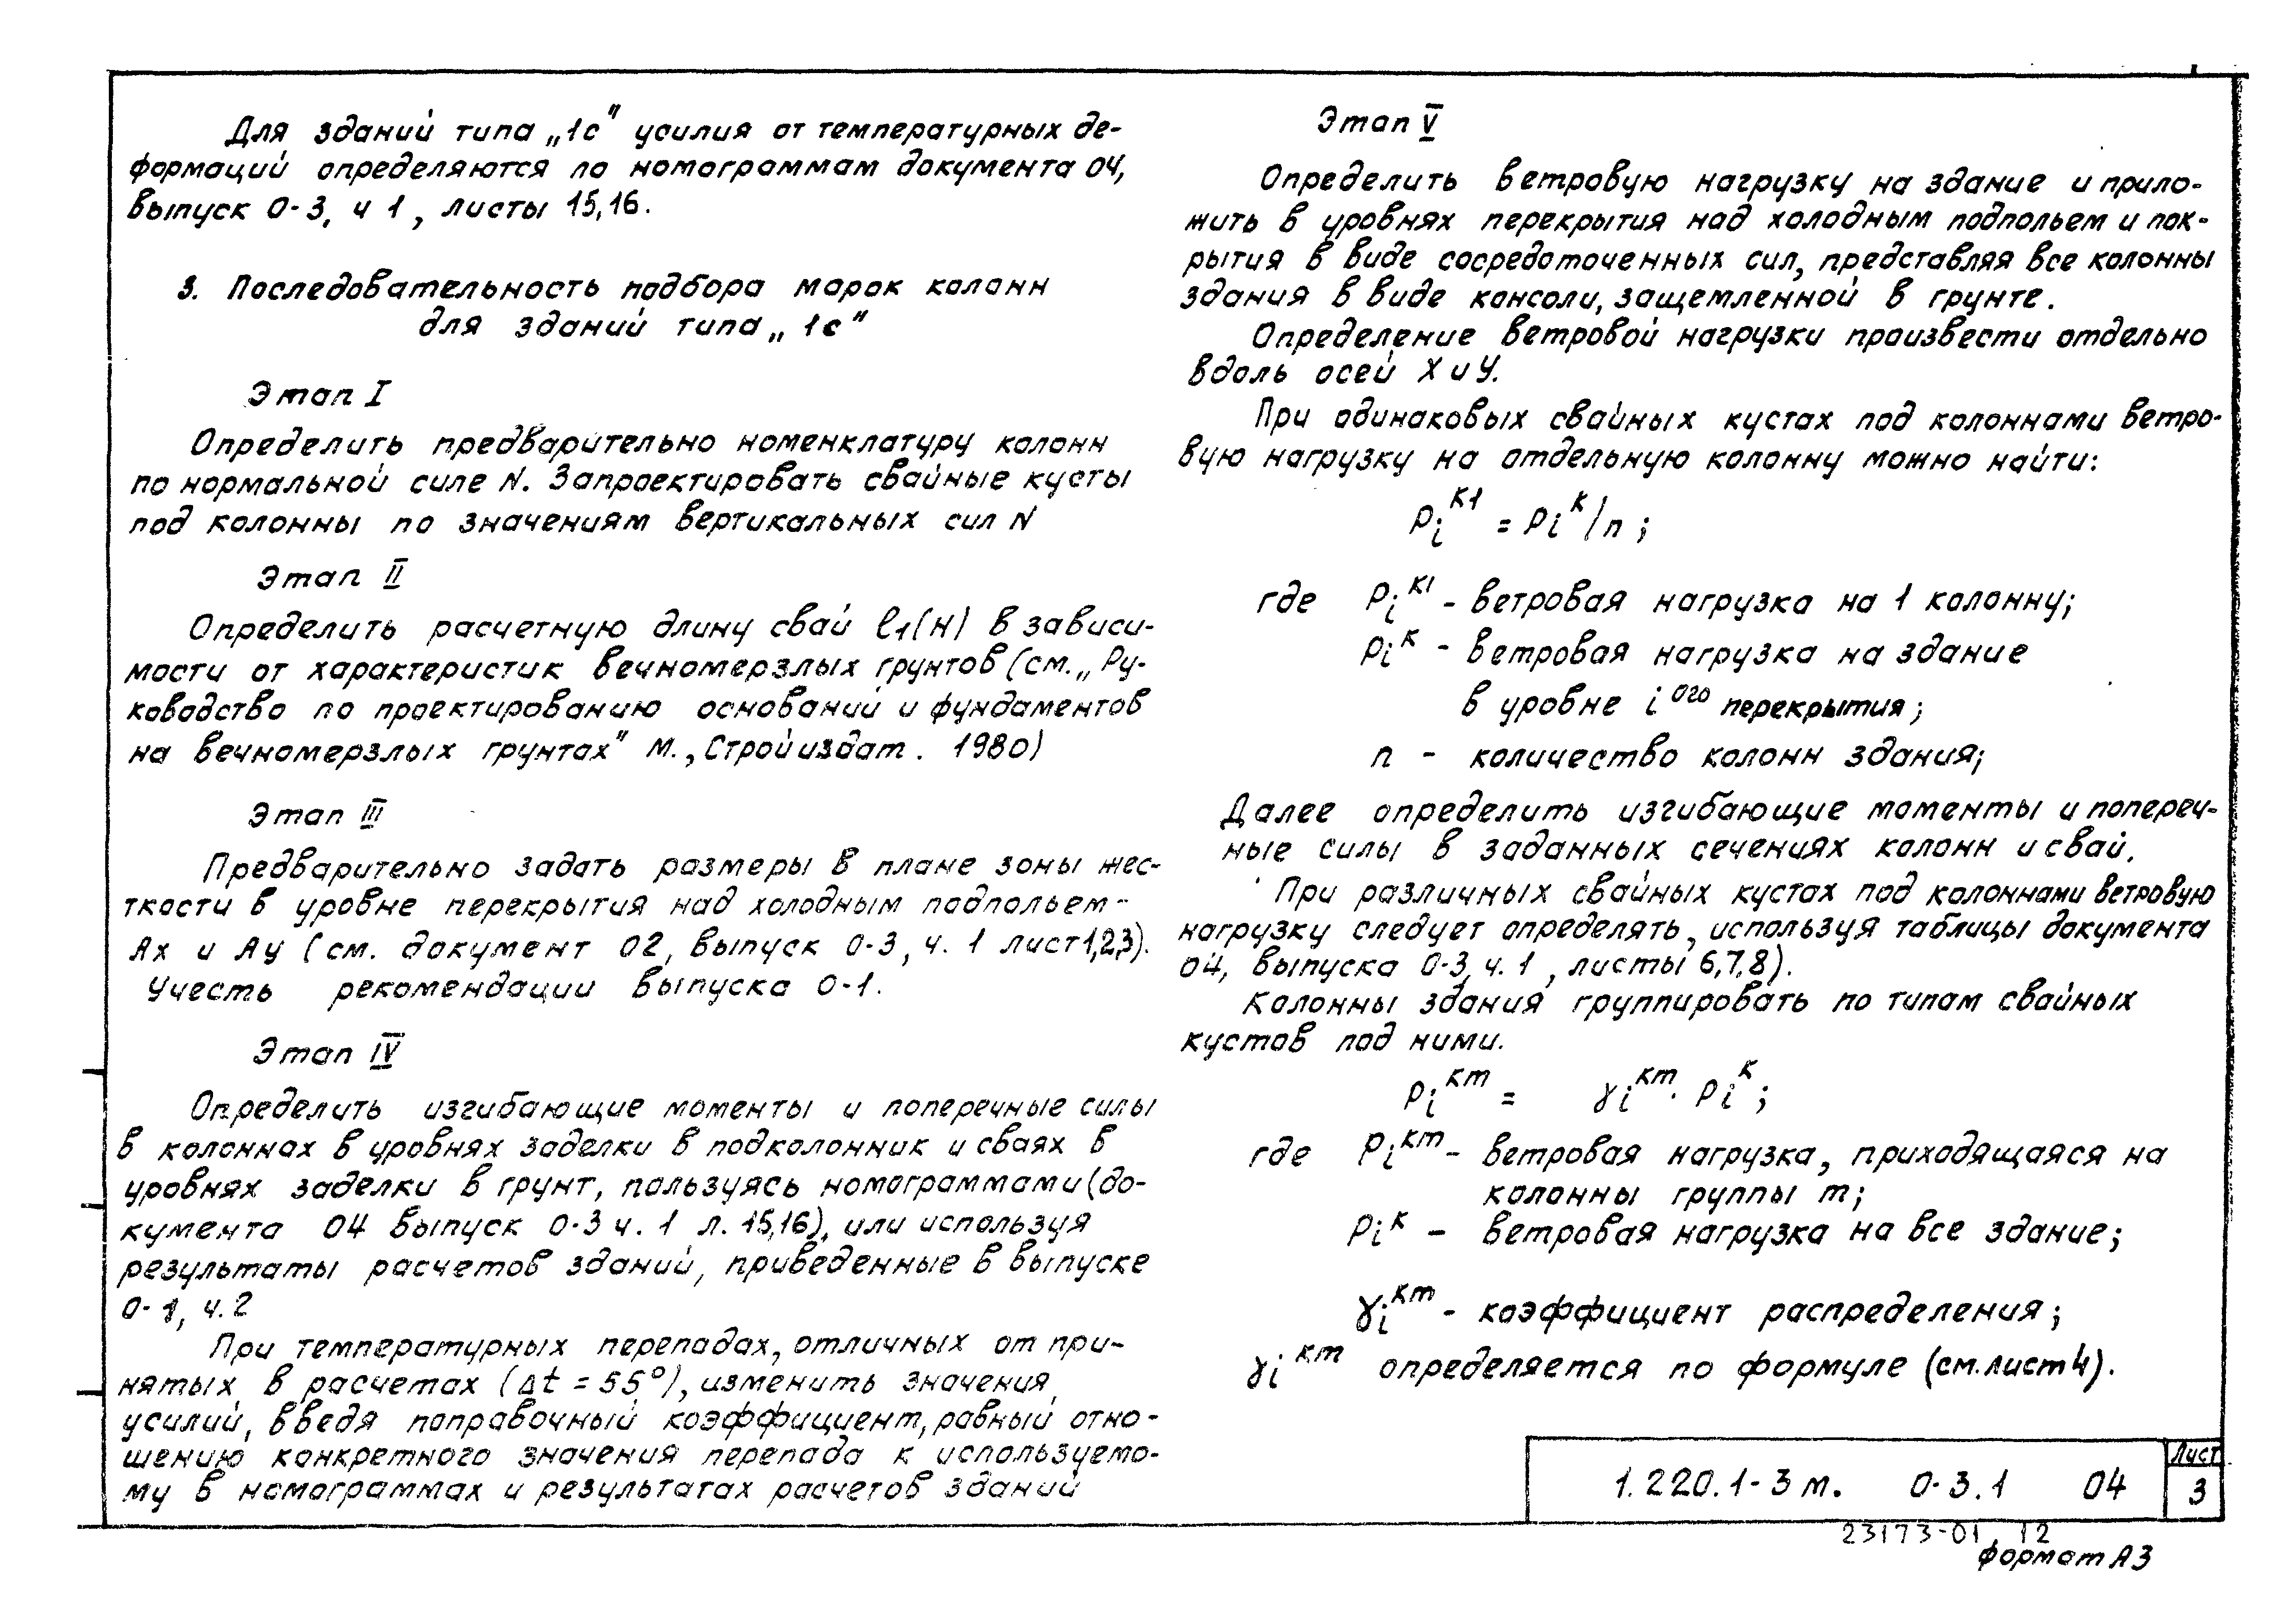 Для зданий типа „1с" усилия от температурных де-
формаций определяются по номограммам документа 04,
выпуск 0-3, ч 1, листы 15,16.
3. Последовательность подбора марок колонн
для зданий типа „1с"
Этап I
Определить предварительно номенклатуру колонн
по нормальной силе N. Запроектировать свайные кусты
под колонны по значениям вертикальных сил N
Этап II
Определить расчетную длину свай l₁(H) в зависи-
мости от характеристик вечномерзлых грунтов (см. „Ру-
ководство по проектированию оснований и фундаментов
на вечномерзлых грунтах" М., Стройиздат. 1980)
Этап III
Предварительно задать размеры в плане зоны жес-
ткости в уровне перекрытия над холодным подпольем-
Ax и Ay (см. документ 02, выпуск 0-3, ч. 1 лист 1,2,3).
Учесть рекомендации выпуска 0-1.
Этап IV
Определить изгибающие моменты и поперечные силы
в колоннах в уровнях заделки в подколонник и сваях в
уровнях заделки в грунт, пользуясь номограммами (до-
кумента 04 выпуск 0-3 ч. 1 л. 15,16), или используя
результаты расчетов зданий, приведенные в выпуске
0-1, ч.2
При температурных перепадах, отличных от при-
нятых в расчетах (Δt = 55°), изменить значения
усилий, введя поправочный коэффициент, равный отно-
шению конкретного значения перепада к используемо-
му в номограммах и результатах расчетов зданий
Этап V
Определить ветровую нагрузку на здание и прило-
жить в уровнях перекрытия над холодным подпольем и пок-
рытия в виде сосредоточенных сил, представляя все колонны
здания в виде консоли, защемленной в грунте.
Определение ветровой нагрузки произвести отдельно
вдоль осей X и У.
При одинаковых свайных кустах под колоннами ветро-
вую нагрузку на отдельную колонну можно найти:
Pᵢᴷ¹ = Pᵢᴷ/n ;
где Pᵢᴷ¹ - ветровая нагрузка на 1 колонну;
Pᵢᴷ - ветровая нагрузка на здание
в уровне i ого перекрытия;
n - количество колонн здания;
Далее определить изгибающие моменты и попереч-
ные силы в заданных сечениях колонн и свай.
При различных свайных кустах под колоннами ветровую
нагрузку следует определять, используя таблицы документа
04, выпуска 0-3, ч. 1, листы 6,7,8).
Колонны здания группировать по типам свайных
кустов под ними.
Pᵢᴷᵐ = γᵢᴷᵐ · Pᵢᴷ ;
где Pᵢᴷᵐ - ветровая нагрузка, приходящаяся на
колонны группы m;
Pᵢᴷ - ветровая нагрузка на все здание;
γᵢᴷᵐ - коэффициент распределения;
γᵢᴷᵐ определяется по формуле (см. лист 4).
1.220.1-3м. 0-3.1 04
Лист
3
23173-01 12
Формат А3